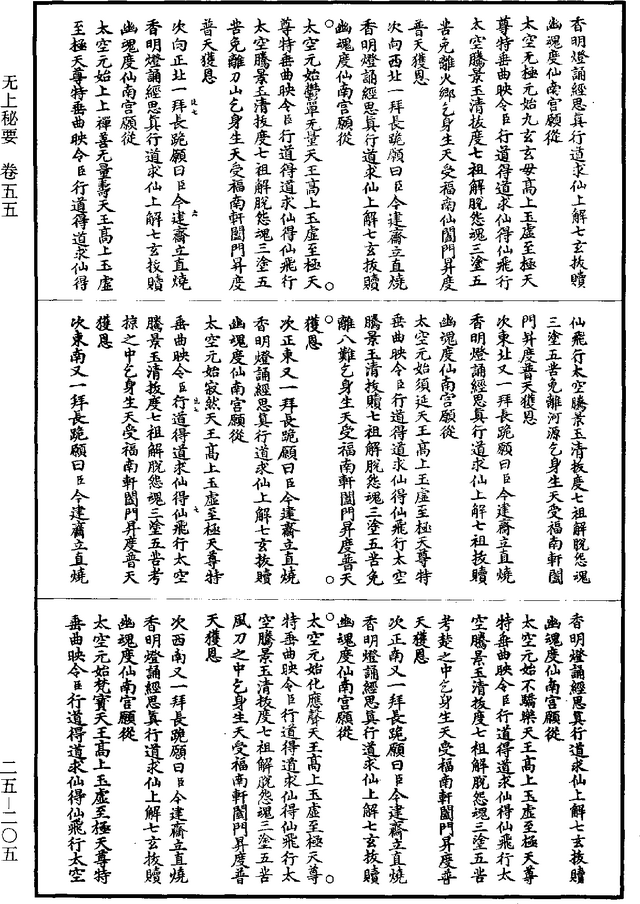 无上秘要 卷五五
二五—二〇五
香明燈誦經思真行道求仙上解七玄拔贖
幽魂度仙南宫願從
太空无極元始九玄玄母髙上玉虚至極天
尊特垂曲映令臣行道得道求仙得仙飛行
太空騰景玉清拔度七祖解脱怨魂三塗五
苦免離火鄉乞身生天受福南仙閶門昇度
普天獲恩
次向西北一拜長跪願曰臣今建齋立直燒
香明燈誦經思真行道求仙上解七玄拔贖
幽魂度仙南宫願從
太空元始鬱單无量天王髙上玉虚至極天
尊特垂曲映令臣行道得道求仙得仙飛行
太空騰景玉清拔度七祖解脱怨魂三塗五
苦免離刀山乞身生天受福南軒閶門昇度
普天獲恩
次向正北一拜長跪願曰臣今建齋立直燒
香明燈誦經思真行道求仙上解七玄拔贖
幽魂度仙南宫願從
太空元始上上禪善无量壽天王髙上玉虚
至極天尊特垂曲映令臣行道得道求仙得
仙飛行太空騰景玉清拔度七祖解脱怨魂
三塗五苦免離河源乞身生天受福南軒閶
門昇度普天獲恩
次東北又一拜長跪願曰臣今建齋立直燒
香明燈誦經思真行道求仙上解七祖拔贖
幽魂度仙南宫願從
太空元始須延天王髙上玉虚至極天尊特
垂曲映令臣行道得道求仙得仙飛行太空
騰景玉清拔贖七祖解脱怨魂三塗五苦免
離八難乞身生天受福南軒閶門昇度普天
獲恩
次正東又一拜長跪願曰臣今建齋立直燒
香明燈誦經思真行道求仙上解七玄拔贖
幽魂度仙南宫願從
太空元始寂然天王髙上玉虚至極天尊特
垂曲映令臣行道得道求仙得仙飛行太空
騰景玉清拔度七祖解脱怨魂三塗五苦考
掠之中乞身生天受福南軒閶門昇度普天
獲恩
次東南又一拜長跪願曰臣今建齋立直燒
香明燈誦經思真行道求仙上解七玄拔贖
幽魂度仙南宫願從
太空元始不驕樂天王髙上玉虚至極天尊
特垂曲映令臣行道得道求仙得仙飛行太
空騰景玉清拔度七祖解脱怨魂三塗五苦
考楚之中乞身生天受福南軒閶門昇度普
天獲恩
次正南又一拜長跪願曰臣今建齋立直燒
香明燈誦經思真行道求仙上解七玄拔贖
幽魂度仙南宫願從
太空元始化應聲天王髙上玉虚至極天尊
特垂曲映令臣行道得道求仙得仙飛行太
空騰景玉清拔度七祖解脱怨魂三塗五苦
風刀之中乞身生天受福南軒閶門昇度普
天獲恩
次西南又一拜長跪願曰臣今建齋立直燒
香明燈誦經思真行道求仙上解七玄拔贖
幽魂度仙南宫願從
太空元始梵寶天王髙上玉虚至極天尊特
垂曲映令臣行道得道求仙得仙飛行太空